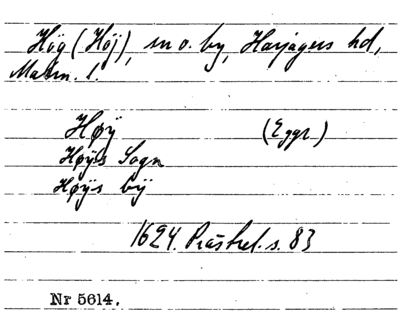 Hög (Höj), sn o. by, Harjagers hd,
Malm. l.
Høÿ (Eggr.)
Høÿs Sogn
Høÿs bÿ
1624. Prästrel. s. 83
Nr 5614.